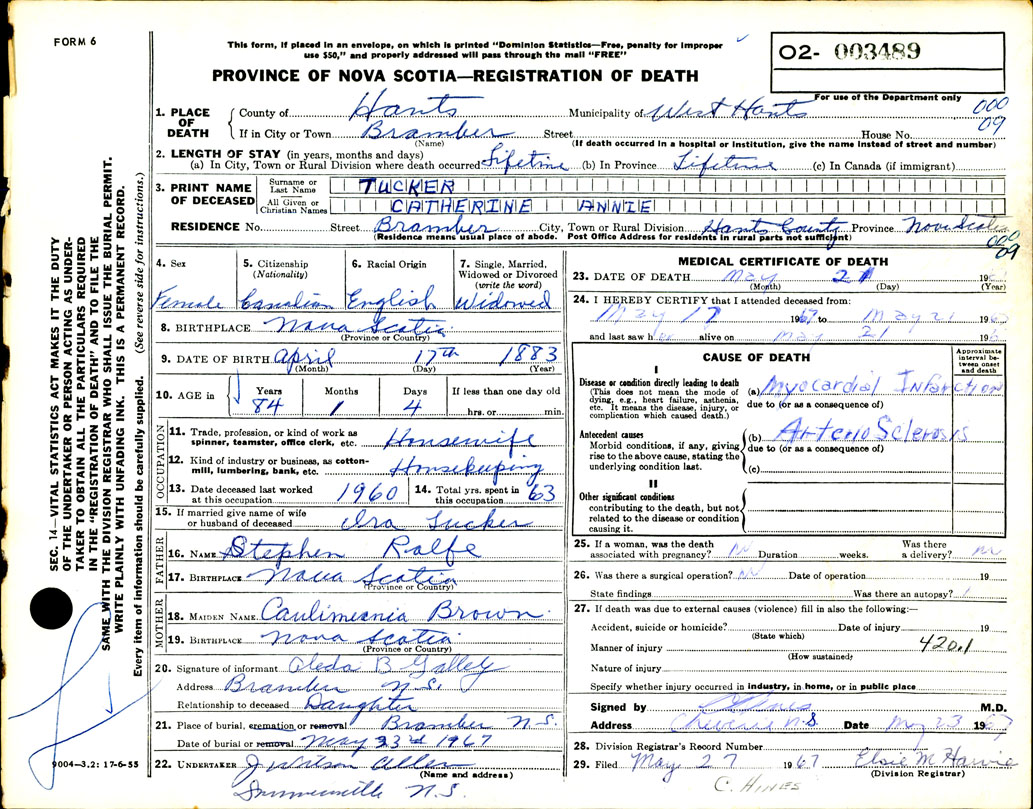 FORM 6
This form, if placed in an envelope, on which is printed "Dominion Statistics—Free, penalty for improper
use $50," and properly addressed will pass through the mail "FREE"
O2- 003489
PROVINCE OF NOVA SCOTIA—REGISTRATION OF DEATH
For use of the Department only
000
09
1. PLACE OF DEATH
County of Hants Municipality of West Hants
If in City or Town Bramber Street House No.
(Name) (If death occurred in a hospital or institution, give the name instead of street and number)
2. LENGTH OF STAY (in years, months and days)
(a) In City, Town or Rural Division where death occurred Lifetime (b) In Province Lifetime (c) In Canada (if immigrant)
3. PRINT NAME OF DECEASED
Surname or Last Name TUCKER
All Given or Christian Names CATHERINE ANNIE
RESIDENCE No. Street Bramber City, Town or Rural Division Hants County Province Nova Scotia
(Residence means usual place of abode. Post Office Address for residents in rural parts not sufficient)
000
09
4. Sex
Female
5. Citizenship
(Nationality)
Canadian
6. Racial Origin
English
7. Single, Married, Widowed or Divorced
(write the word)
Widowed
8. BIRTHPLACE Nova Scotia
(Province or Country)
9. DATE OF BIRTH April 17th 1883
(Month) (Day) (Year)
10. AGE in
Years Months Days If less than one day old
84 1 4 hrs. or min.
OCCUPATION
11. Trade, profession, or kind of work as
spinner, teamster, office clerk, etc. Housewife
12. Kind of industry or business, as cotton-
mill, lumbering, bank, etc. Housekeeping
13. Date deceased last worked
at this occupation 1960
14. Total yrs. spent in
this occupation 63
15. If married give name of wife
or husband of deceased Ira Tucker
FATHER
16. NAME Stephen Rolfe
17. BIRTHPLACE Nova Scotia
(Province or Country)
MOTHER
18. MAIDEN NAME Brown
19. BIRTHPLACE Nova Scotia
(Province or Country)
20. Signature of informant Oleda B Galley
Address Bramber N.S.
Relationship to deceased Daughter
21. Place of burial, cremation or removal Bramber N.S.
Date of burial or removal May 23rd 1967
22. UNDERTAKER J Wilson Allen
(Name and address)
Summerville N.S.
MEDICAL CERTIFICATE OF DEATH
23. DATE OF DEATH May 21 1967
(Month) (Day) (Year)
24. I HEREBY CERTIFY that I attended deceased from:
May 17 1967 to May 21 1967
and last saw her alive on May 21 196
CAUSE OF DEATH
Approximate interval between onset and death
I
Disease or condition directly leading to death
(This does not mean the mode of dying, e.g., heart failure, asthenia, etc. It means the disease, injury, or complication which caused death.)
(a) Myocardial Infarction
due to (or as a consequence of)
Antecedent causes
Morbid conditions, if any, giving rise to the above cause, stating the underlying condition last.
(b) Arterio Sclerosis
due to (or as a consequence of)
(c)
II
Other significant conditions
contributing to the death, but not related to the disease or condition causing it.
25. If a woman, was the death
associated with pregnancy? No Duration weeks. Was there a delivery? No
26. Was there a surgical operation? No Date of operation 19
State findings Was there an autopsy?
27. If death was due to external causes (violence) fill in also the following:—
Accident, suicide or homicide? Date of injury 19
(State which)
Manner of injury 420.1
(How sustained)
Nature of injury
Specify whether injury occurred in industry, in home, or in public place
Signed by C Hines M.D.
Address Cheverie N.S. Date May 23 1967
28. Division Registrar's Record Number
29. Filed May 27 1967 Elsie M Harvie
(Division Registrar)
C. HINES
SEC. 14—VITAL STATISTICS ACT MAKES IT THE DUTY
OF THE UNDERTAKER OR PERSON ACTING AS UNDER-
TAKER TO OBTAIN ALL THE PARTICULARS REQUIRED
IN THE "REGISTRATION OF DEATH" AND TO FILE THE
SAME WITH THE DIVISION REGISTRAR WHO SHALL ISSUE THE BURIAL PERMIT.
WRITE PLAINLY WITH UNFADING INK. THIS IS A PERMANENT RECORD.
Every item of information should be carefully supplied. (See reverse side for instructions.)
9004—3.2: 17-6-55